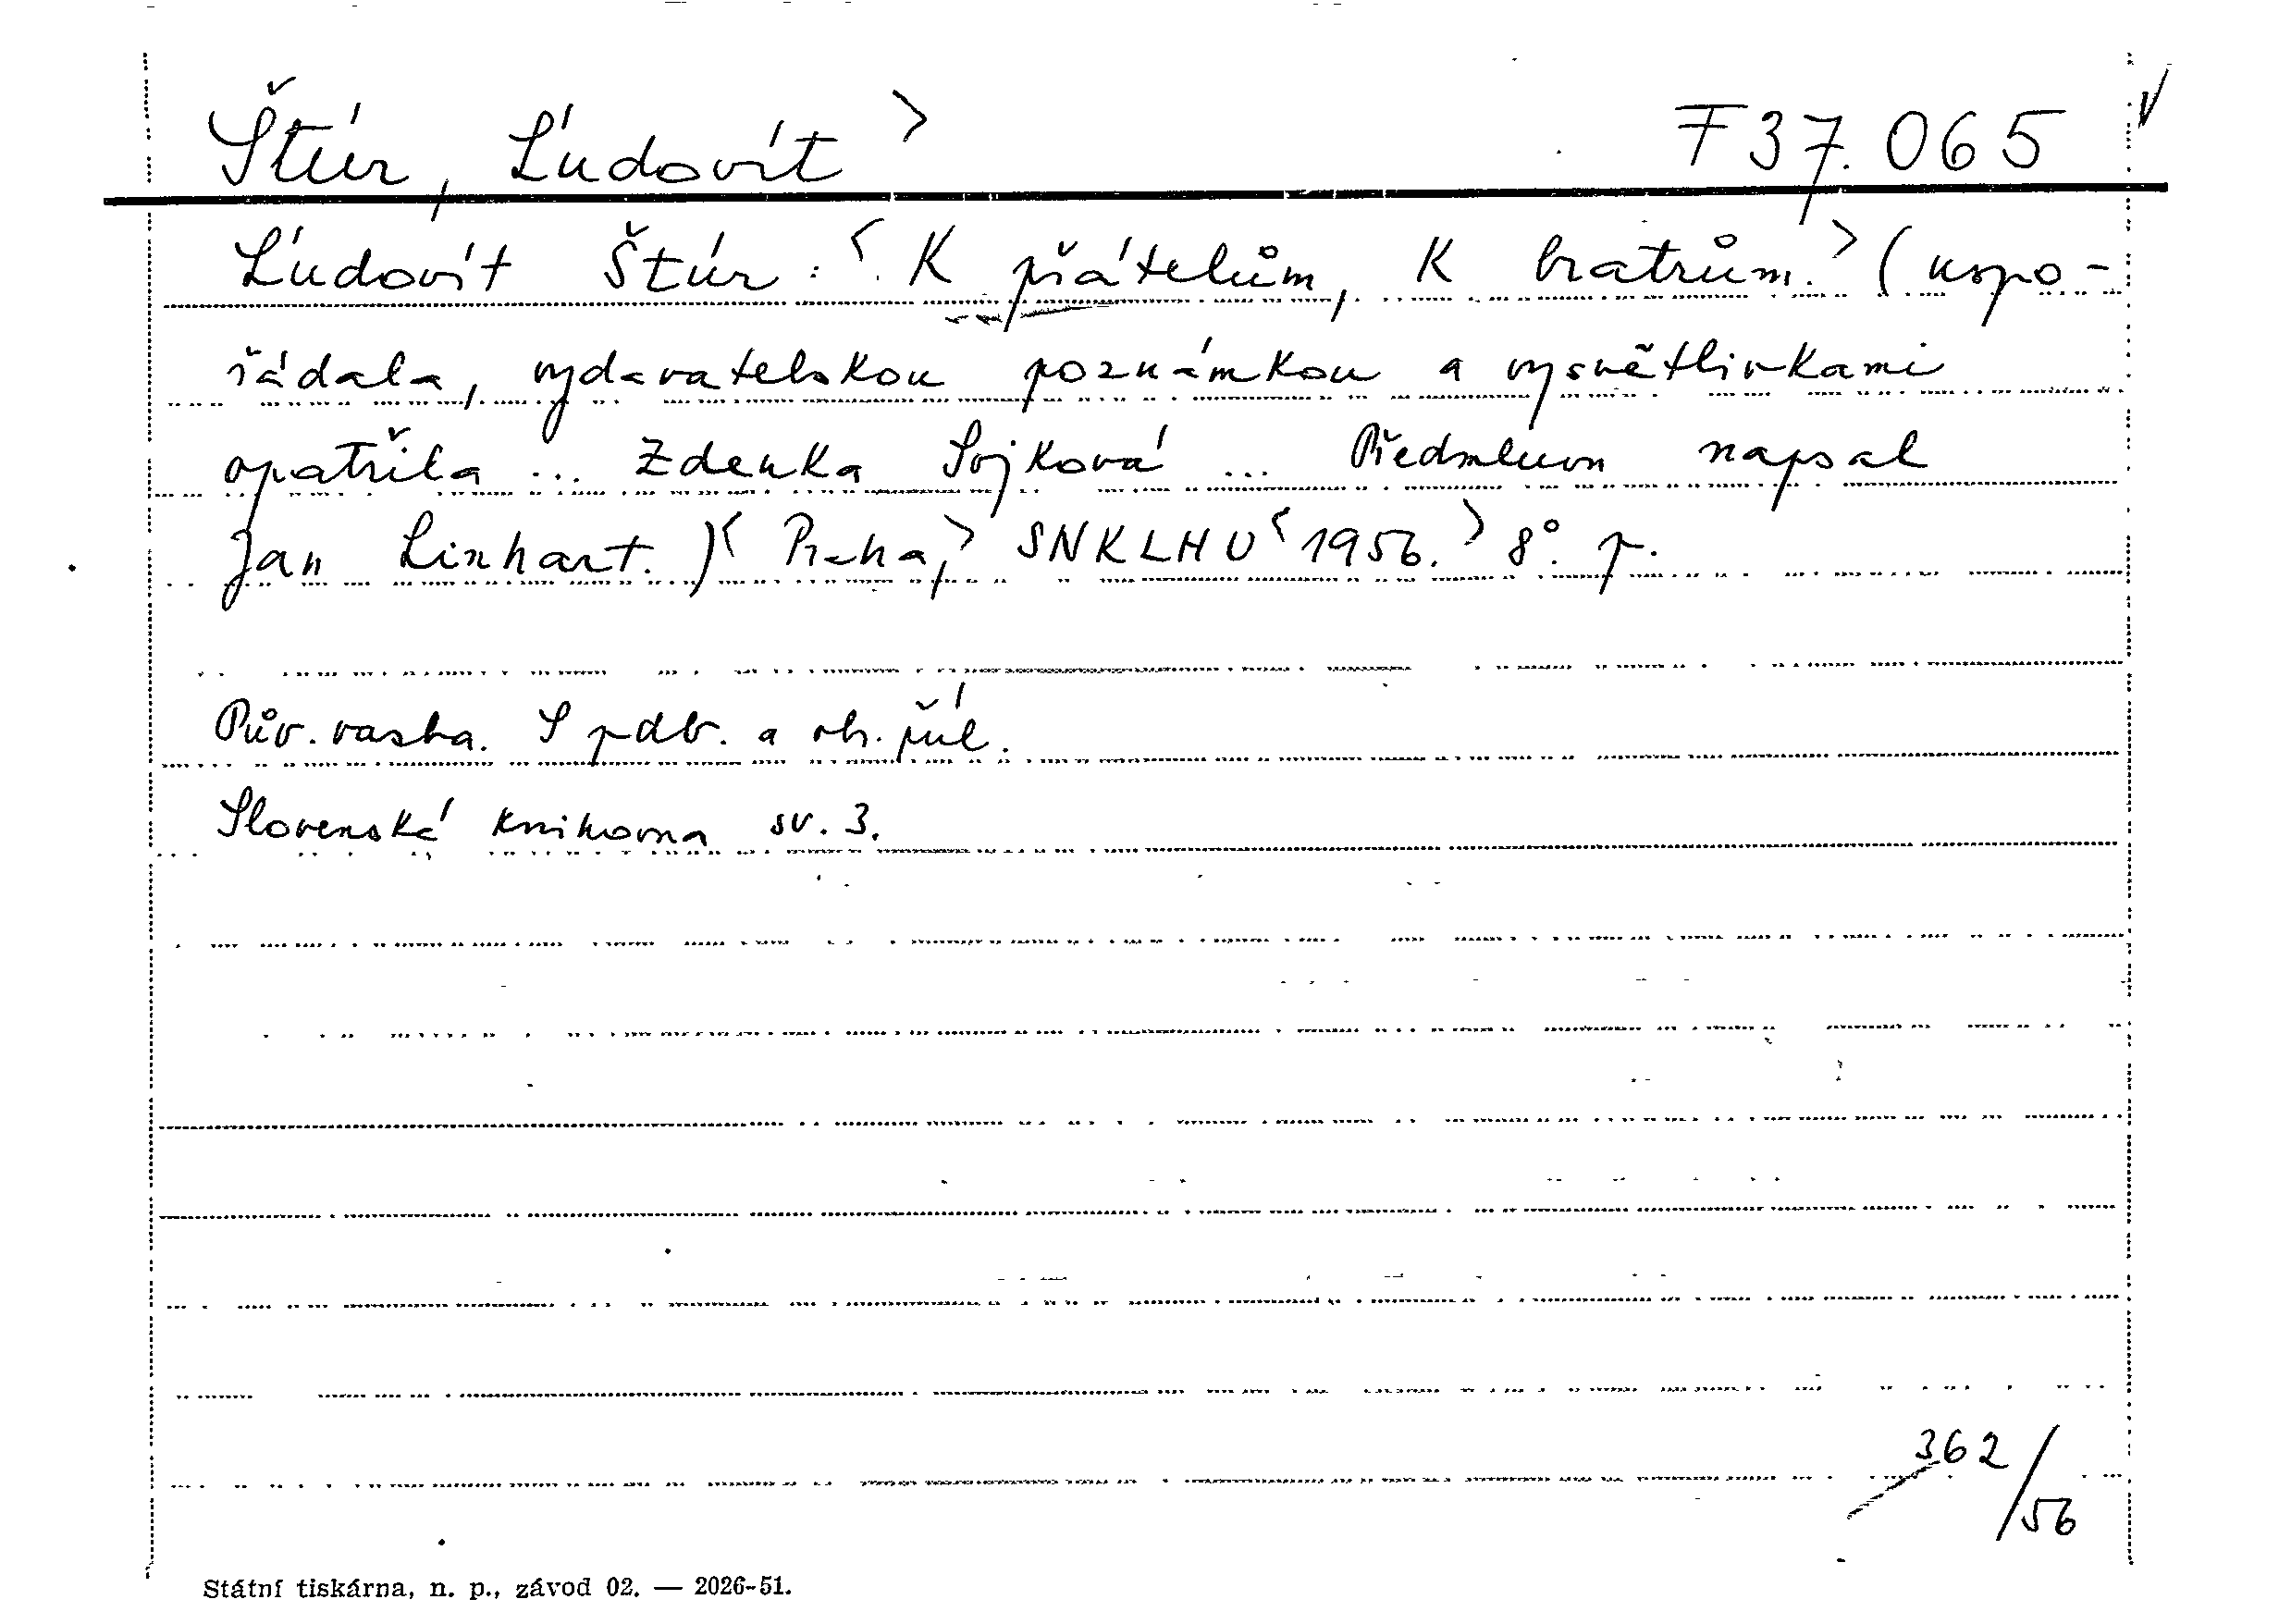 Štúr, Ľudovít > F 37.065
Ľudovít Štúr: <K přátelům, K bratrům.> (uspo-
řádala, vydavatelskou poznámkou a vysvětlivkami
opatřila ... Zdenka Sojková ... Předmluvu napsal
Jan Linhart.) <Praha,> SNKLHU <1956.> 8°. p.
Pův. vazba. S pdb. a ob. příl.
Slovenská knihovna sv. 3.
362/56
Státní tiskárna, n. p., závod 02. — 2026-51.